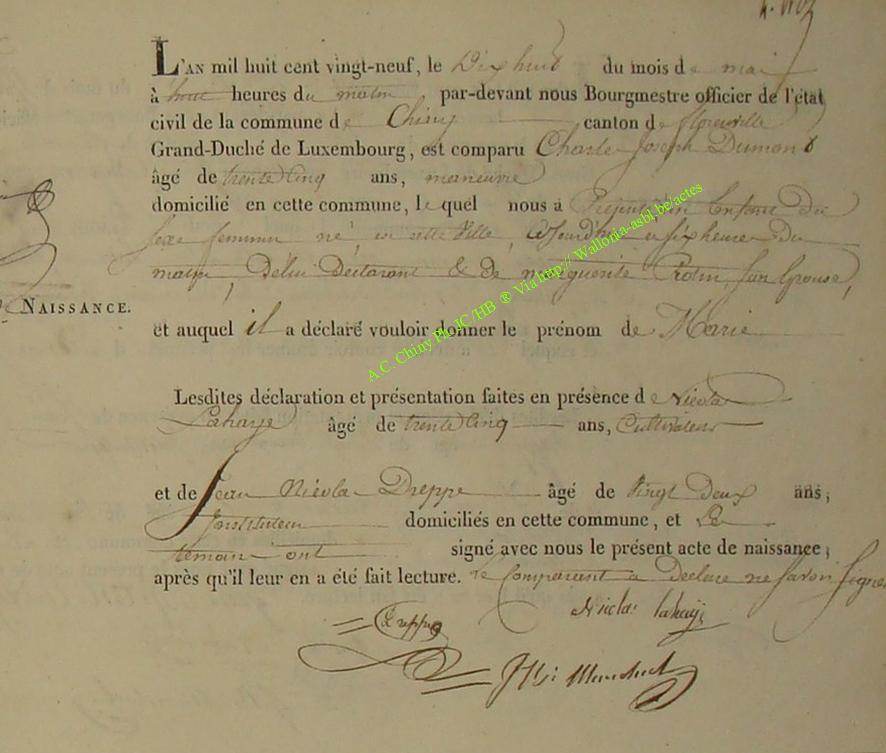 L'AN mil huit cent vingt-neuf, le Dix huit du mois de mai
à huit heures du matin, par-devant nous Bourgmestre officier de l'état
civil de la commune de Chiny canton de florenville
Grand-Duché de Luxembourg, est comparu Charle Joseph Dumont
âgé de trente Cinq ans, maneuvre
domicilié en cette commune, lequel nous a Présenté un Enfant du
sexe feminin né, en cette Ville, aujourdhui a six heures Du
matin, Délui Déclarant & de marguerite son Epouse,
NAISSANCE.
et auquel il a déclaré vouloir donner le prénom de Marie
Lesdites déclaration et présentation faites en présence de Nicolas
Lahaye âgé de trente Cinq ans, Cultivateur
et de Jean Nicolas Dreppe âgé de Vingt Deux ans,
Instituteur domiciliés en cette commune, et Le
temoin ont signé avec nous le présent acte de naissance,
après qu'il leur en a été fait lecture. Le Comparant a Declaré ne savoir signer
Nicolas lahaye
Dreppe
A.C. Chiny Ph JC /HB ® Via http// Wallonia-asbl.be/actes